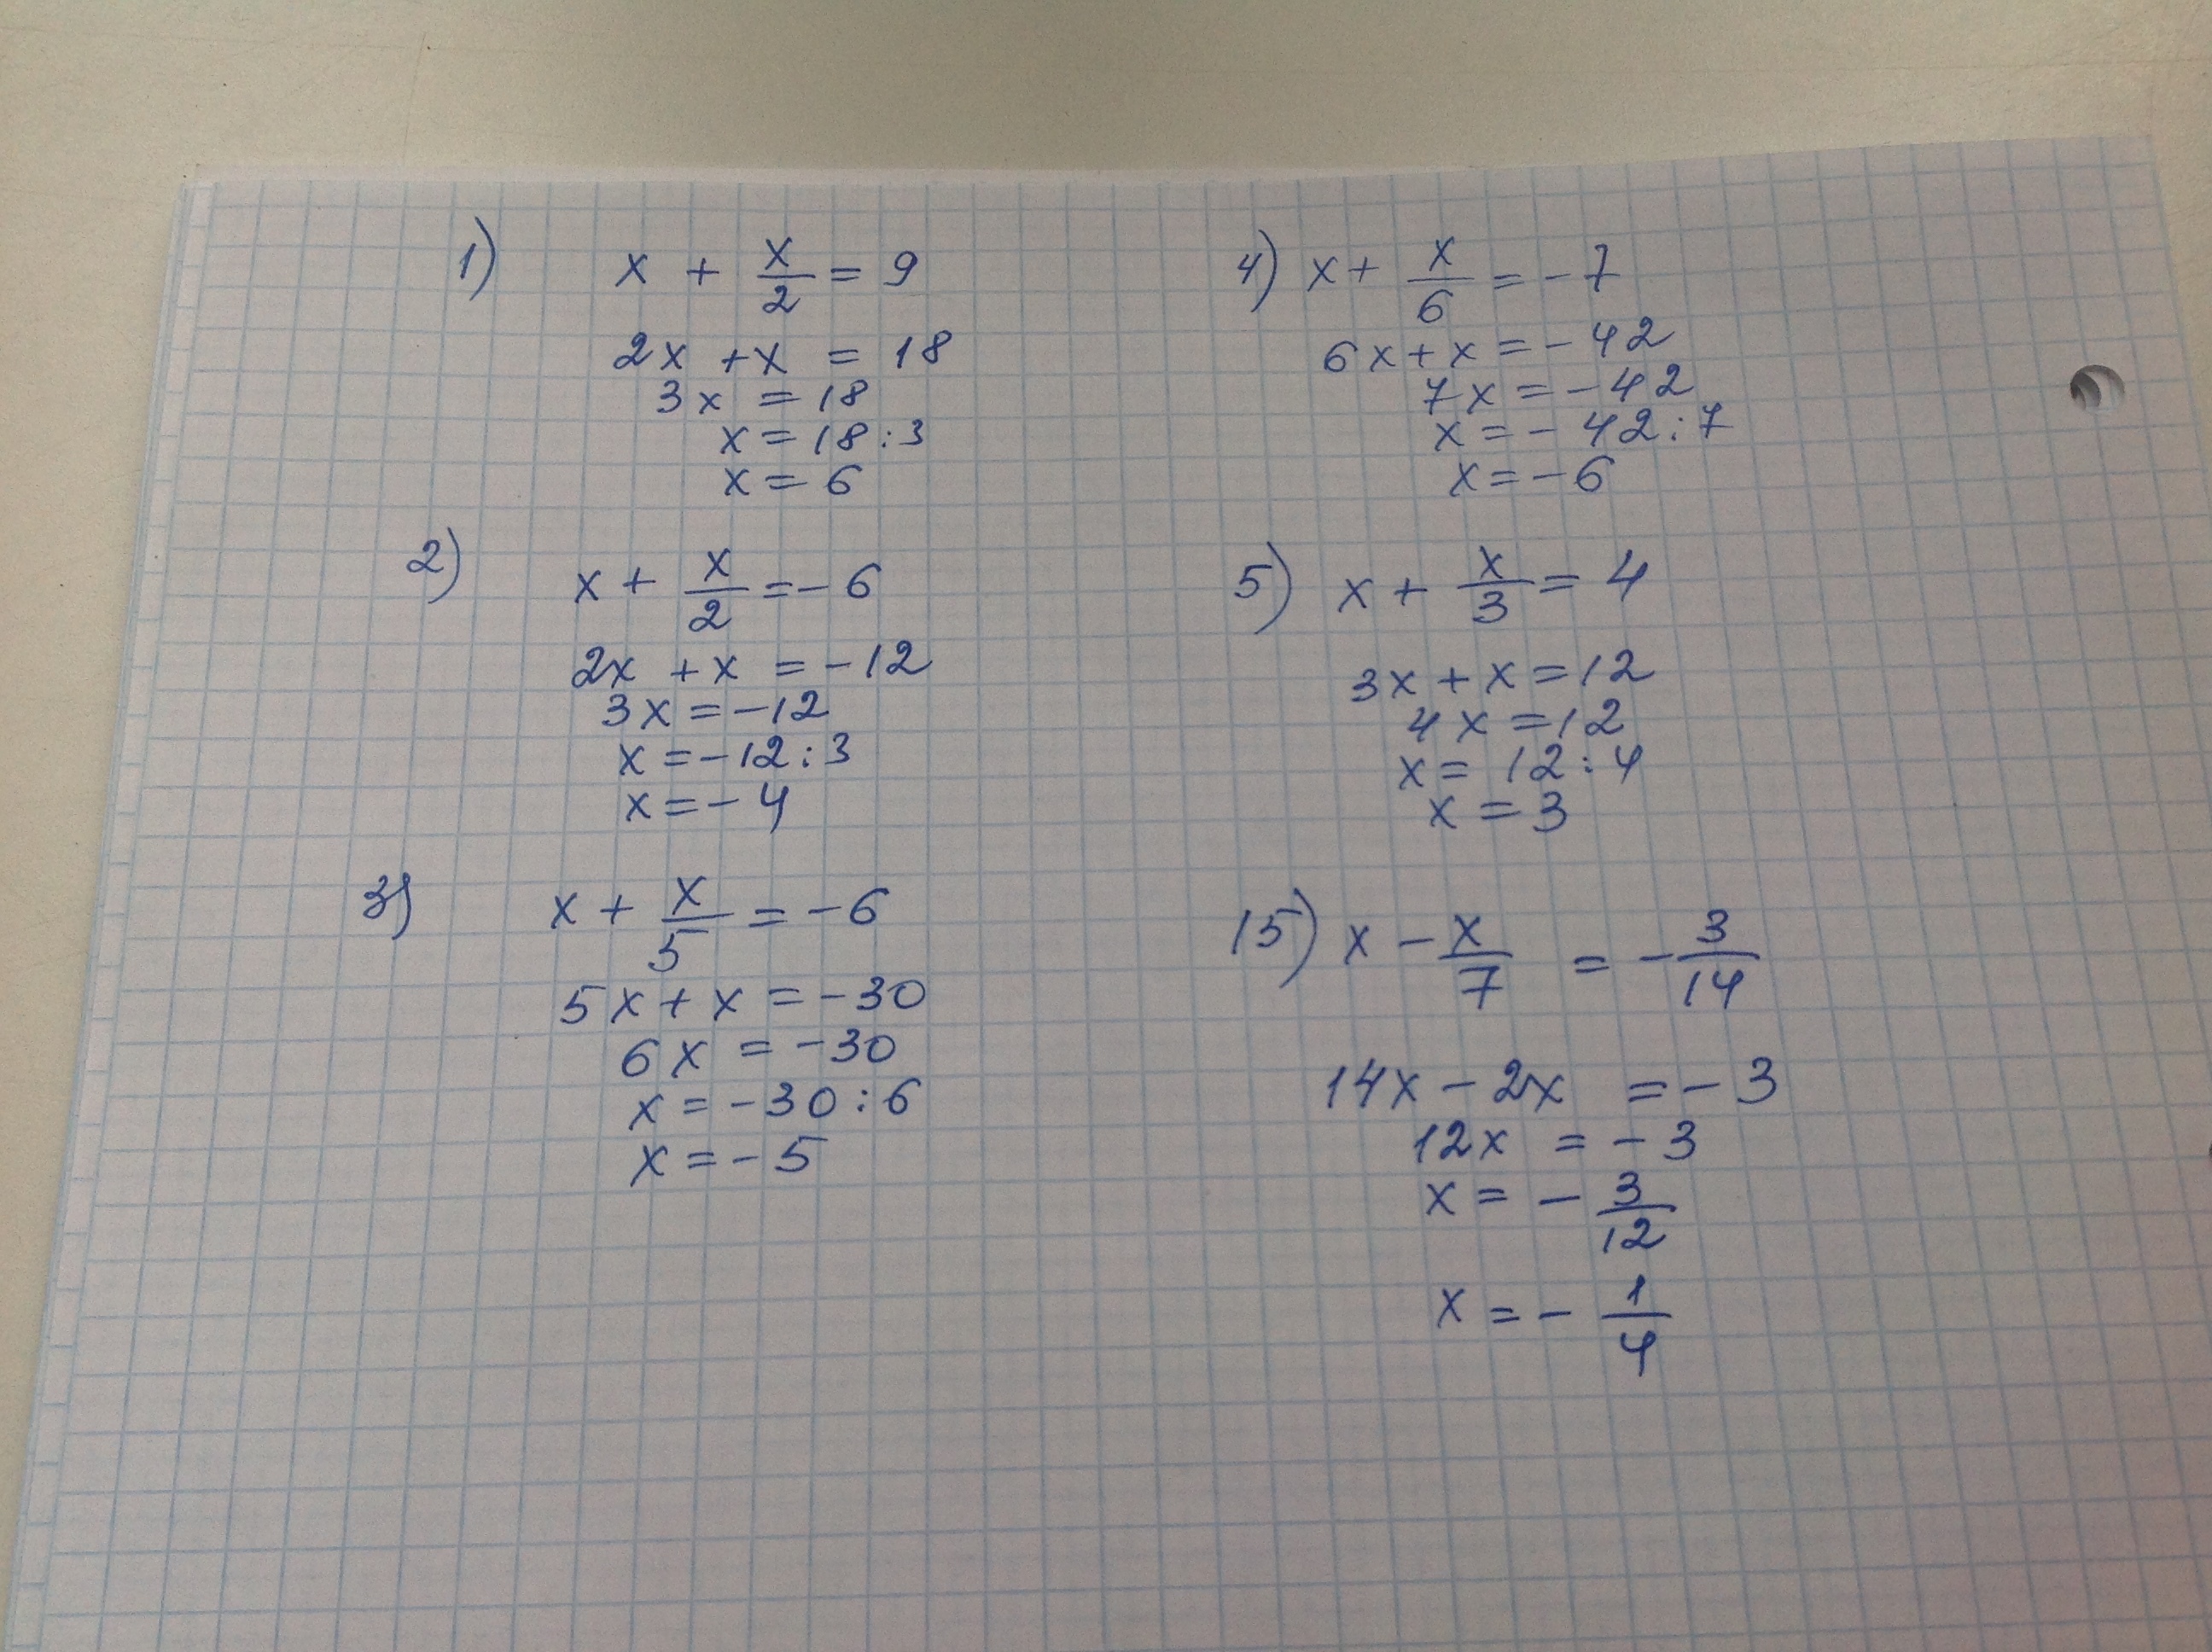 1) x + x/2 = 9
2x + x = 18
3x = 18
x = 18 : 3
x = 6
2) x + x/2 = - 6
2x + x = - 12
3x = - 12
x = - 12 : 3
x = - 4
3) x + x/5 = - 6
5x + x = - 30
6x = - 30
x = - 30 : 6
x = - 5
4) x + x/6 = - 7
6x + x = - 42
7x = - 42
x = - 42 : 7
x = - 6
5) x + x/3 = 4
3x + x = 12
4x = 12
x = 12 : 4
x = 3
15) x - x/7 = - 3/14
14x - 2x = - 3
12x = - 3
x = - 3/12
x = - 1/4